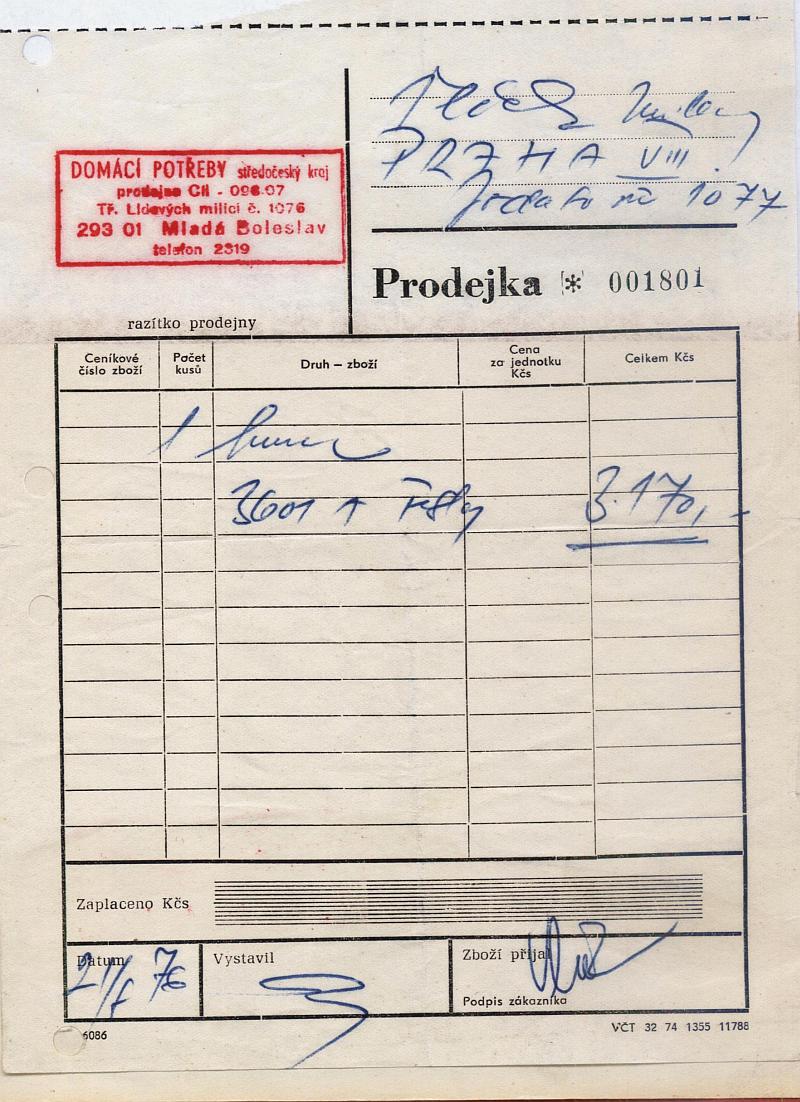 PRAHA VIII.
1077
DOMÁCÍ POTŘEBY středočeský kraj
prodejna CH - 096-07
Tř. Lidových milicí č. 1076
293 01 Mladá Boleslav
telefon 2319
Prodejka * 001801
razítko prodejny
Ceníkové číslo zboží
Počet kusů
Druh — zboží
Cena za jednotku Kčs
Celkem Kčs
1
3601 3.170,-
Zaplaceno Kčs
Datum
76
Vystavil
Zboží přijal
Podpis zákazníka
6086
VČT 32 74 1355 11788